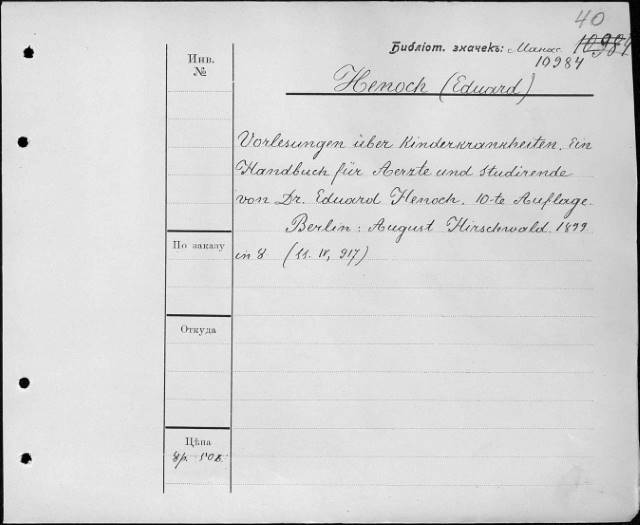 40
Библіот. значекъ: Манас. 10984
10984
Инв.
№
Henoch (Eduard)
Vorlesungen über Kinderkrankheiten. Ein
Handbuch für Aerzte und Studirende
von Dr. Eduard Henoch. 10-te Auflage.
Berlin: August Hirschwald. 1899
По заказу
in 8 (SS. IV, 917)
Откуда
Цѣна
8р. 50к.